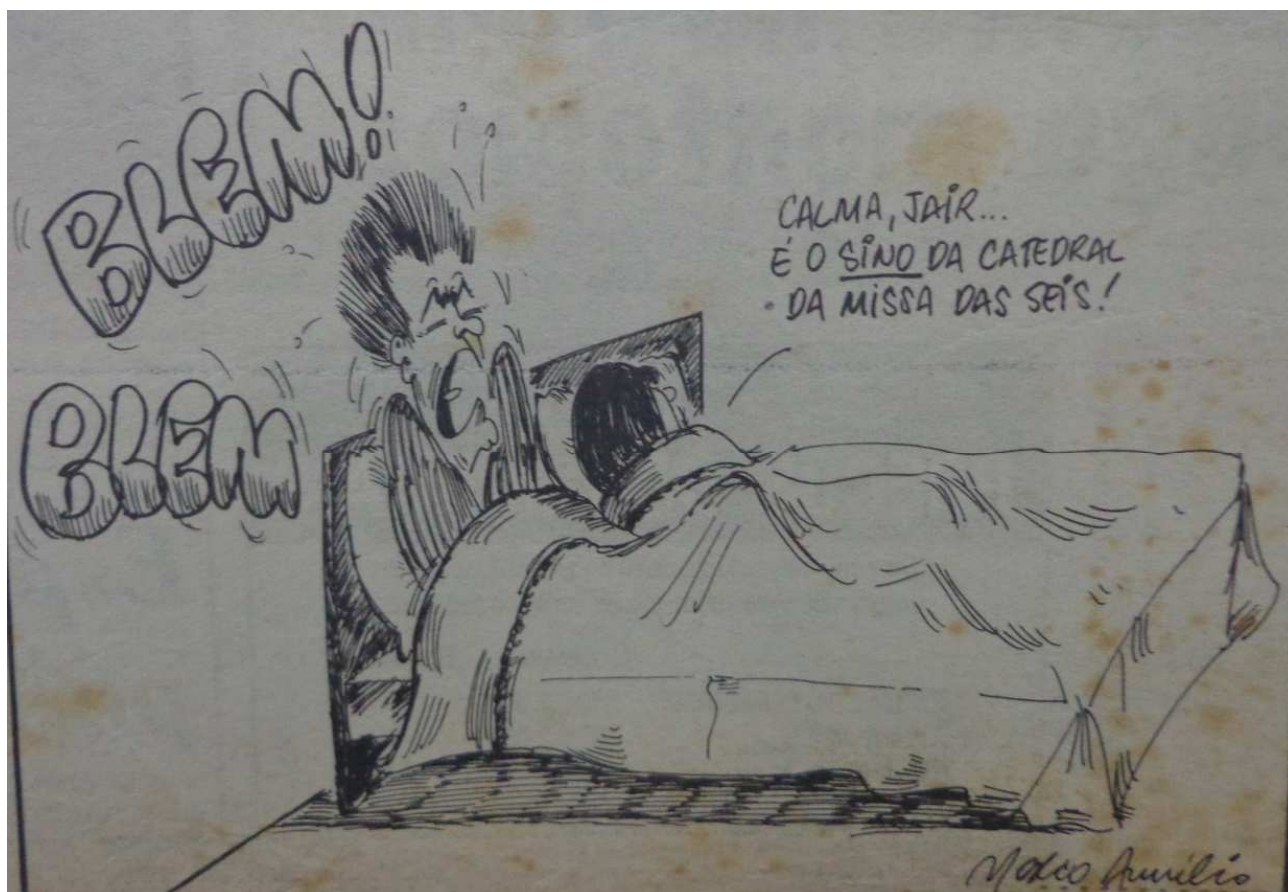 BLEM!
BLEM
CALMA, JAIR...
É O SINO DA CATEDRAL
DA MISSA DAS SEIS!
Marco Aurélio